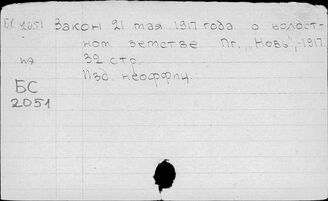 БС 2051 Закон 21 мая 1917 года о волост-
ном земстве Пг., „Новь", 1917.
32 стр.
Изд. неоффиц.
БС
2051